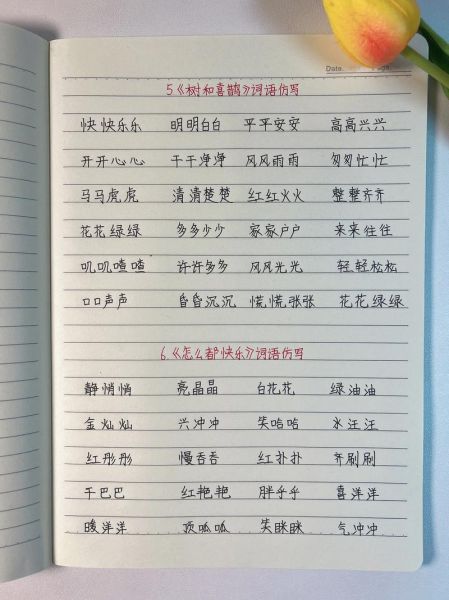 Date.
5《树和喜鹊》词语仿写
快快乐乐 明明白白 平平安安 高高兴兴
开开心心 干干净净 风风雨雨 匆匆忙忙
马马虎虎 清清楚楚 红红火火 整整齐齐
花花绿绿 多多少少 家家户户 来来往往
叽叽喳喳 许许多多 风风光光 轻轻松松
口口声声 昏昏沉沉 慌慌张张 花花绿绿
6《怎么都快乐》词语仿写
静悄悄 亮晶晶 白花花 绿油油
金灿灿 兴冲冲 笑哈哈 水汪汪
红彤彤 慢吞吞 红扑扑 齐刷刷
干巴巴 红艳艳 胖乎乎 喜洋洋
暖洋洋 顶呱呱 笑眯眯 气冲冲